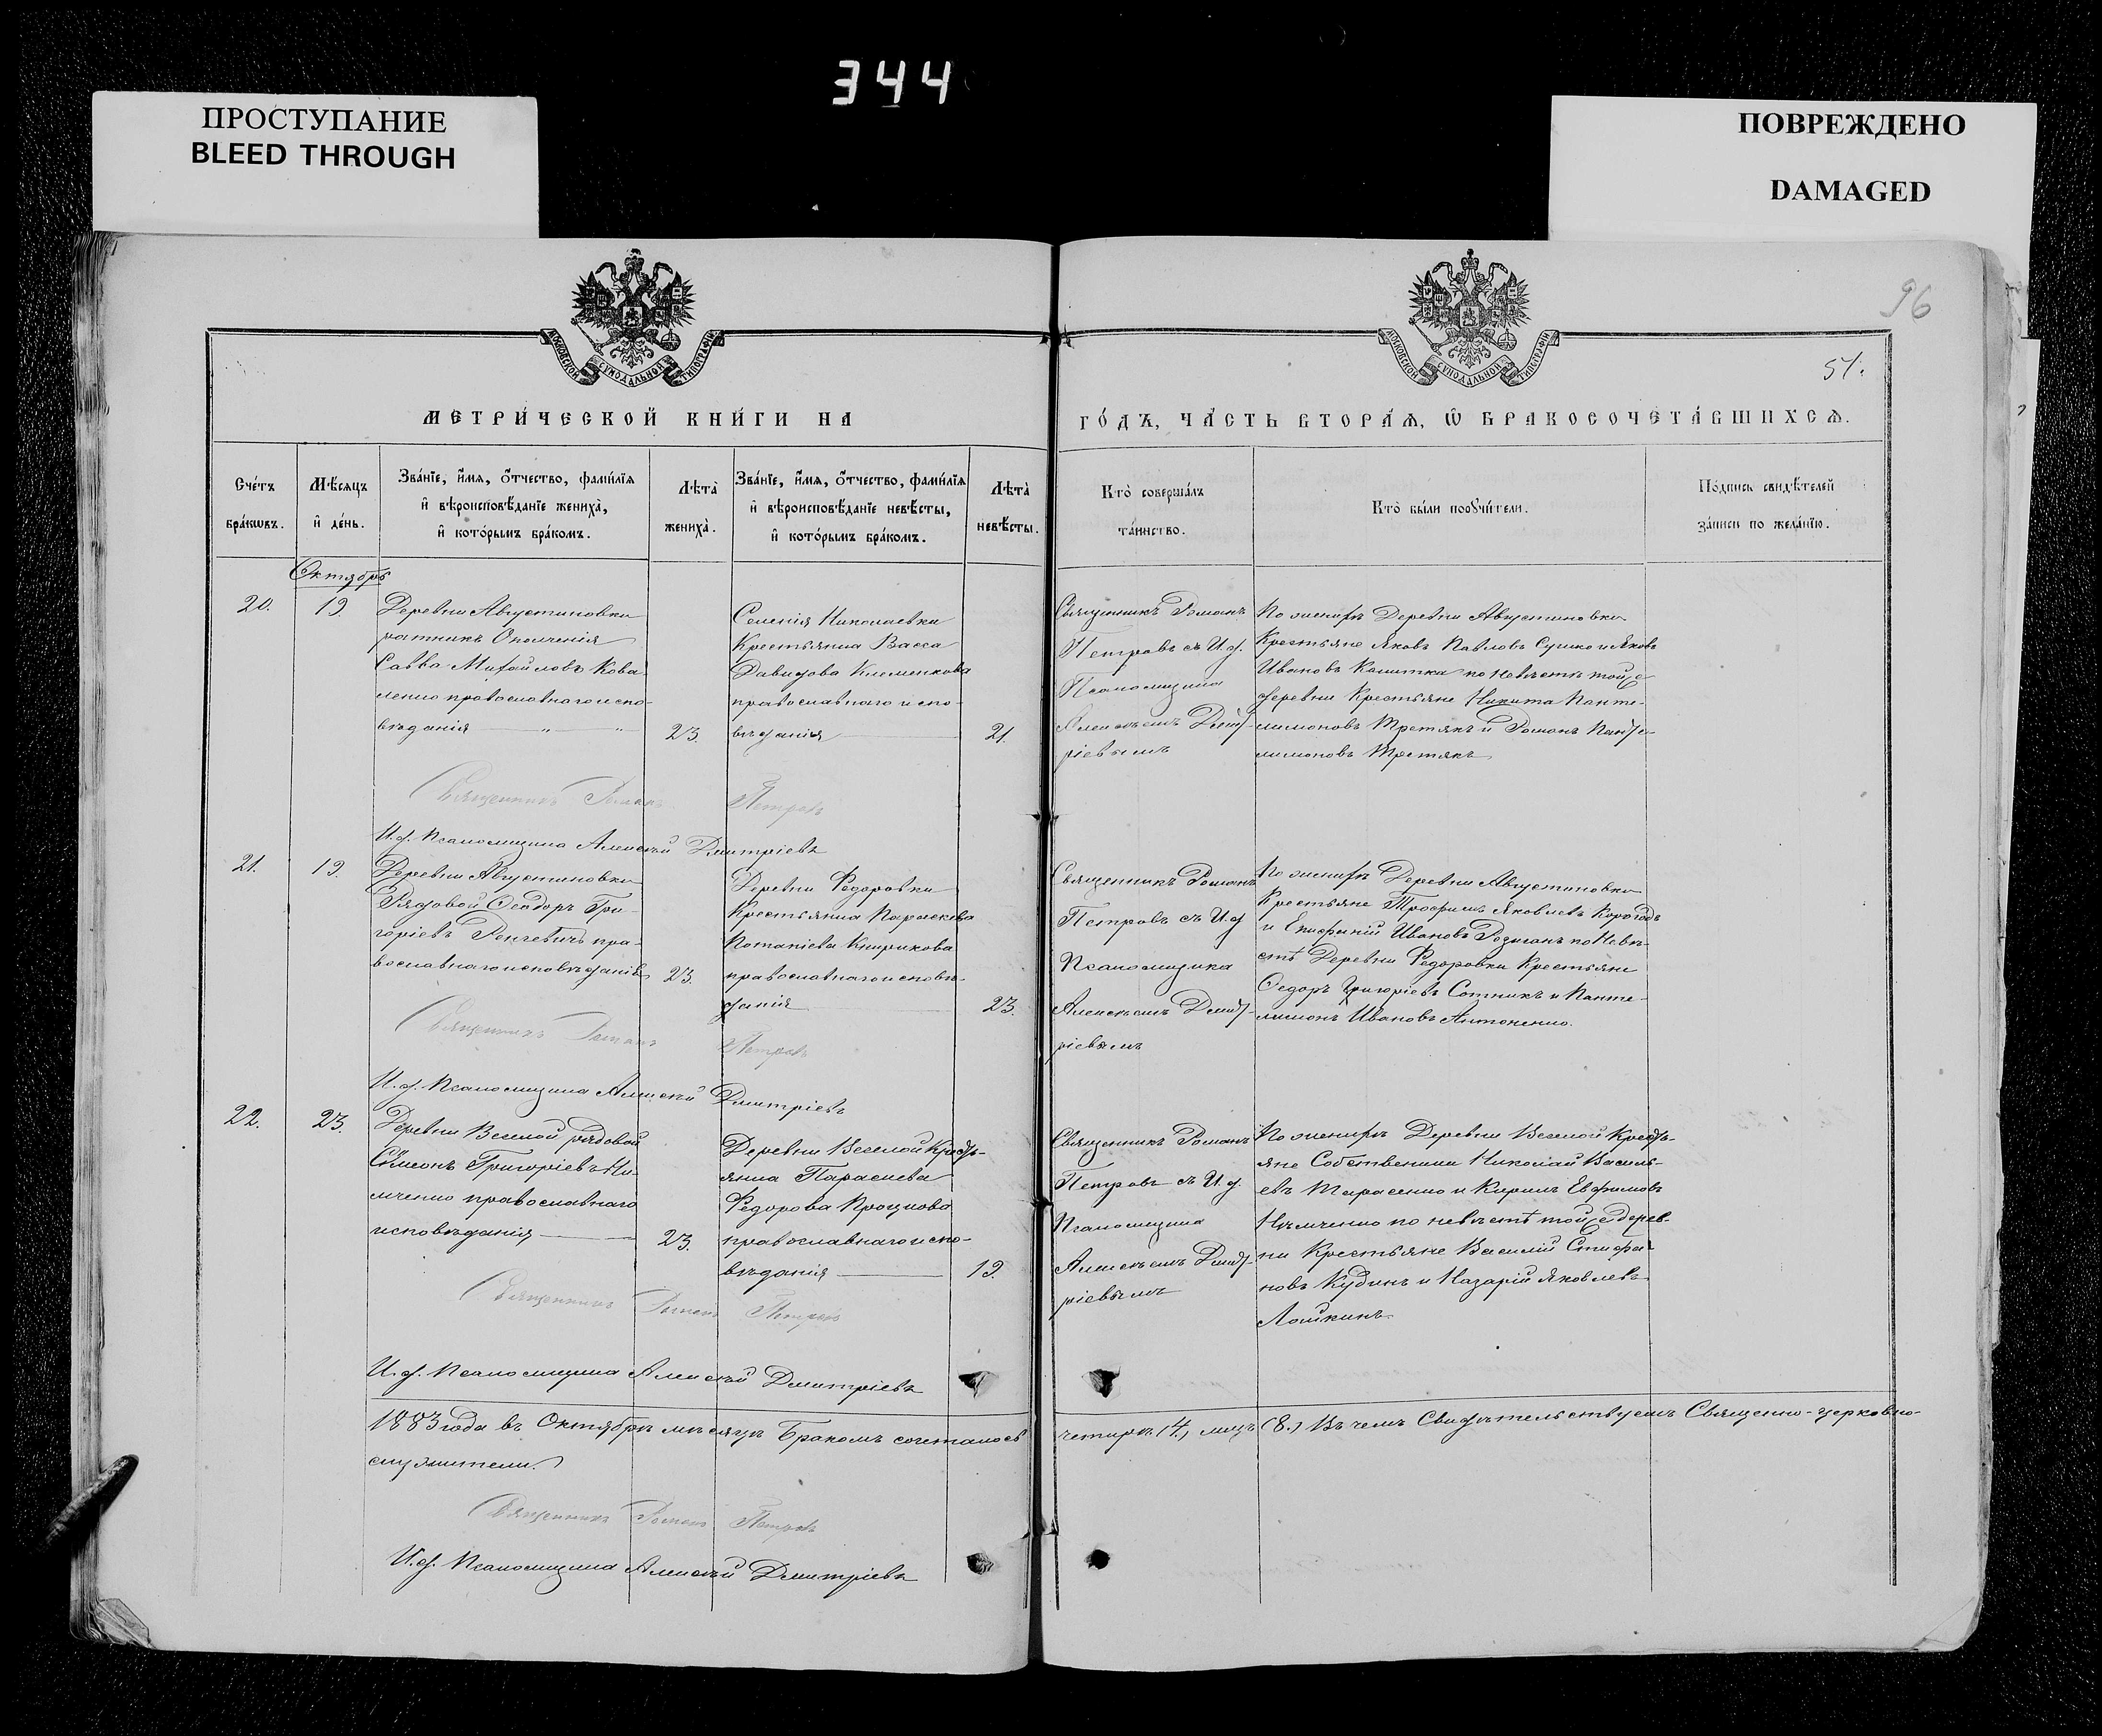 344
ПРОСТУПАНИЕ
BLEED THROUGH
ПОВРЕЖДЕНО
DAMAGED
96
МОСКОВСКОЙ СѴНОДАЛЬНОЙ ТИПОГРАФІИ
МОСКОВСКОЙ СѴНОДАЛЬНОЙ ТИПОГРАФІИ
51.
МЕТРИ́ЧЕСКОЙ КНИ́ГИ НА
ГО́ДЪ, ЧА́СТЬ ВТОРА́Ѧ, Ѽ БРАКОСОЧЕТА́ВШИХСѦ.
Сче́тъ
бра́кѡвъ.
Мѣ́сяцъ
и҆ де́нь.
Зва́нїе, и҆́мя, ѻ҆́тчество, фами́лїя
и҆ вѣроисповѣ́данїе жениха̀,
и҆ кото́рымъ бра́комъ.
Лѣта̀
жениха̀.
Зва́нїе, и҆́мя, ѻ҆́тчество, фами́лїя
и҆ вѣроисповѣ́данїе невѣ́сты,
и҆ кото́рымъ бра́комъ.
Лѣта̀
невѣ́сты.
Кто̀ соверша́лъ
та́инство.
Кто̀ бы́ли порꙋчи́тели.
По́дпись свидѣ́телей
за́писи по жела́нїю.
Октябрь
20.
19.
Деревни Августиновки
ратникъ Ополченія
Савва Михайловъ Кова
ленко православнаго испо-
вѣданія — „ — „
23.
Селенія Николаевки
Крестьянка Васса
Давидова Клеменкова
православнаго испо-
вѣданія
21.
Священникъ Романъ
Петровъ съ И. д.
Псаломщика
Алексѣемъ Дмит-
ріевымъ
По женихѣ Деревни Августиновки
Крестьяне Яковъ Павловъ Сушко и Яковъ
Ивановъ Калитка по невѣстѣ той же
деревни Крестьяне Никита Панте-
лимоновъ Третякъ и Романъ Панте-
лимоновъ Третякъ
Священникъ Романъ Петровъ
И. д. Псаломщика Алексѣй Дмитріевъ
21.
19.
Деревни Августиновки
Рядовой Ѳеодоръ Гри-
горіевъ пра-
вославнаго исповѣданія
23.
Деревни Федоровки
Крестьянка Параскева
Потапіева Кнырикова
православнаго исповѣ-
данія
23.
Священникъ Романъ
Петровъ съ И. д
Псаломщика
Алексѣемъ Дмит-
ріевымъ
По женихѣ Деревни Августиновки
Крестьяне Трофимъ Яковлевъ Корогодъ
и Епифаній Ивановъ по Невѣ-
стѣ Деревни Федоровки Крестьяне
Ѳедоръ Григоріевъ Сотникъ и Панте-
лимонъ Ивановъ Антоненко.
Священникъ Романъ Петровъ
И. д. Псаломщика Алексѣй Дмитріевъ
22.
23.
Деревни Веселой рядовой
Симеонъ Григоріевъ Нѣ-
мченко православнаго
исповѣданія
23.
Деревни Веселой Кресть-
янка Параскева
Федорова Процкова
православнаго испо-
вѣданія
19.
Священникъ Романъ
Петровъ съ И. д.
Псаломщика
Алексѣемъ Дмит-
ріевымъ
По женихѣ Деревни Веселой Кресть-
яне Собственники Николай Василь-
евъ Тарасенко и Кирилъ Евфимовъ
Нѣмченко по невѣстѣ той же дерев-
ни Крестьяне Василій Стефа-
новъ Кудинъ и Назарій Яковлевъ
Лошкинъ
Священникъ Романъ Петровъ
И. д. Псаломщика Алексѣй Дмитріевъ
1883 года въ Октябрѣ мѣсяцѣ Бракомъ сочеталось четыре (4.) лицъ (8.) Въ чемъ Свидѣтельствуемъ Священно-церковно-
служители.
Священникъ Романъ Петровъ
И. д. Псаломщика Алексѣй Дмитріевъ